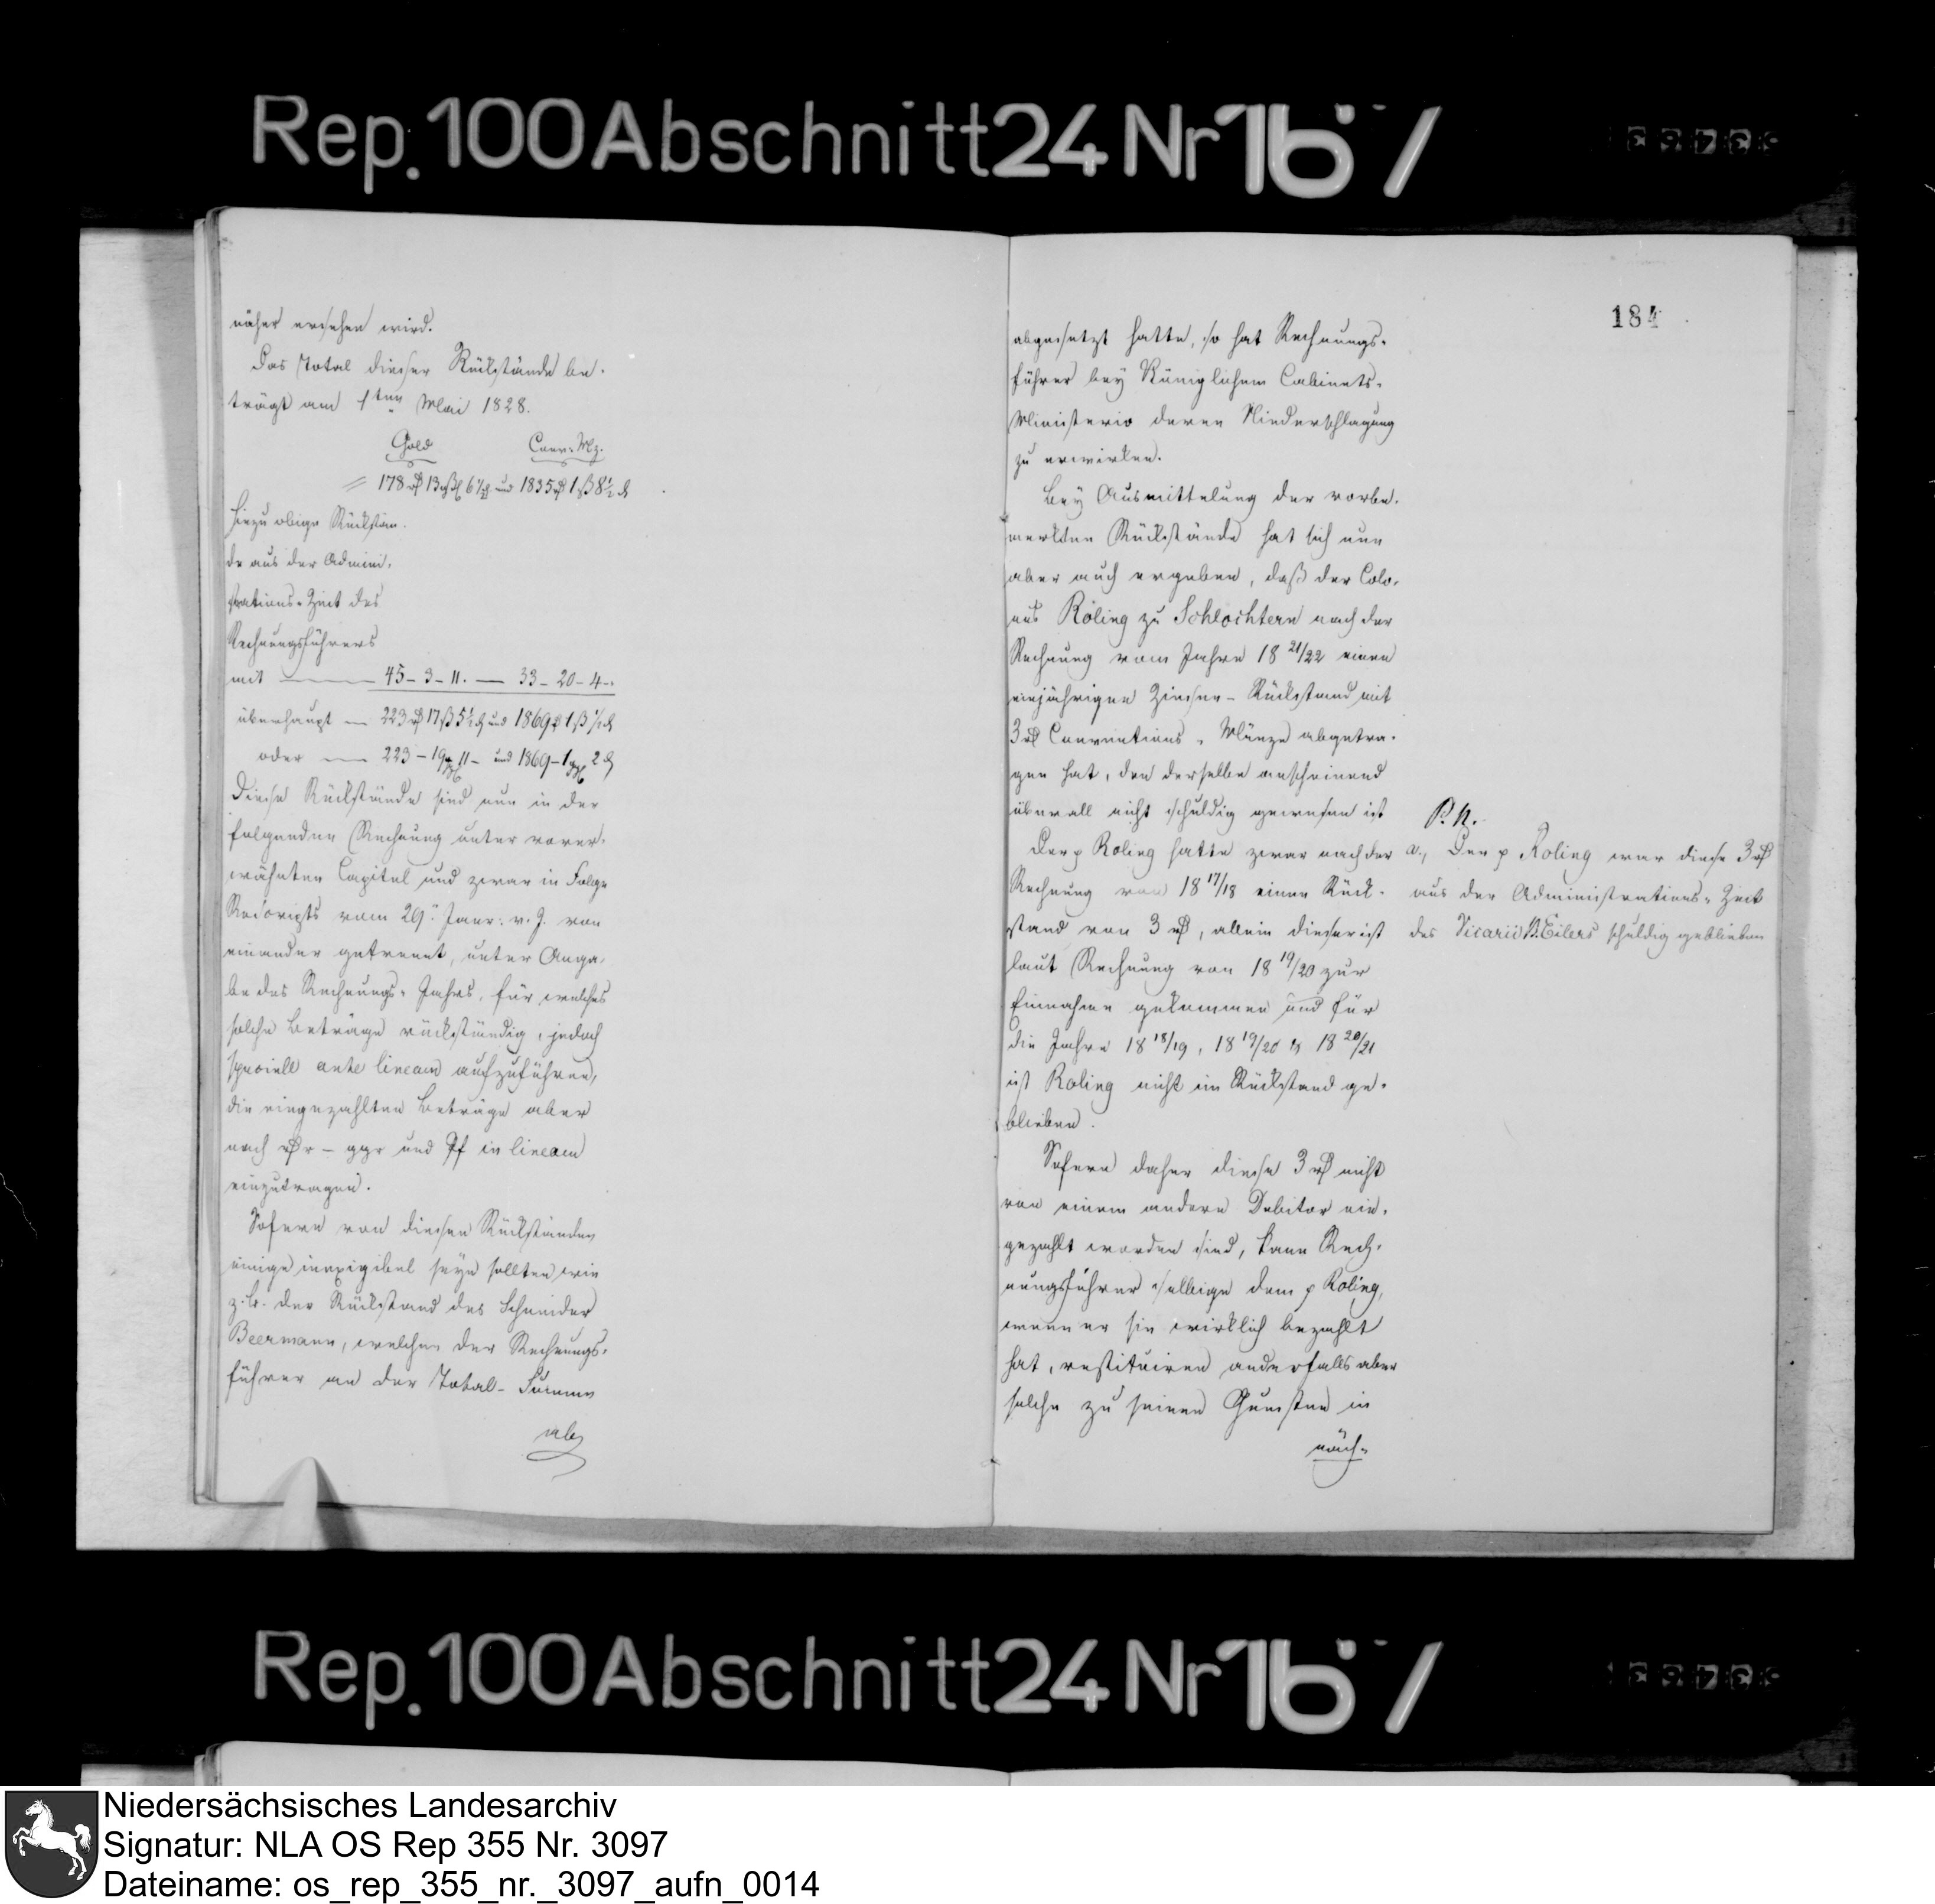 Rep. 100 Abschnitt 24 Nr 167
näher ersehen wird.
Das Total dieser Rückstände be-
trägt am 1ten Mai 1828.
Gold Conv: Mz.
= 178 rℓ 13 ßl 6 1/2 ₰ und 1835 rℓ 1 ß 8 1/2 ₰
Hiezu obige Rückstän-
de aus der Admini-
strations-Zeit des
Rechnungsführers
mit — 45 - 3 - 11. — 33 - 20 - 4 -.
überhaupt — 223 rℓ 17 ß 5 1/2 ₰ und 1869 rℓ 1 ß 1/2 ₰
oder — 223 - 19 ggl 11 - und 1869 - 1 ggl 2 ₰
Diese Rückstände sind nun in der
folgenden Rechnung unter vorer-
wähnten Capitel und zwar in Folge
Rescripts vom 29. Janr: v. J. von
einander getrennt, unter Anga-
be des Rechnungs-Jahrs, für welches
solche Beträge rückständig, jedoch
speciell ante lineam aufzuführen,
die eingezahlten Beträge aber
nach rℓr - ggr und Pf in lineam
einzutragen.
Sofern von diesen Rückständen
einige inexigibel seyn sollten wie
z. B. der Rückstand des Schneider
Beermann, welchen der Rechnungs-
führer an der Total-Summe
ab
184
abgesetzt hatte, so hat Rechnungs-
führer bey Königlichem Cabinets-
Ministerio deren Niederschlagung
zu erwirken.
Bey Ausmittelung der vorbe-
merkten Rückstände hat sich nun
aber auch ergeben, daß der Colo-
nus Röling zu Schlochtern nach der
Rechnung vom Jahre 18 21/22 einen
einjährigen Zinsen-Rückstand mit
3 rℓ Conventions-Münze abgetra-
gen hat, den derselbe anscheinend
überall nicht schuldig gewesen ist
Der p Roling hatte zwar nach der
Rechnung von 18 17/18 einen Rück-
stand von 3 rℓ, allein dieser ist
laut Rechnung von 18 19/20 zur
Einnahme gekommen und für
die Jahre 18 18/19, 18 19/20 & 18 20/21
ist Roling nicht im Rückstand ge-
blieben.
Sofern daher diese 3 rℓ nicht
von einem andern Debitor ein-
gezahlt worden sind, kann Rech-
nungsführer selbige dem p Roling,
wenn er sie wirklich bezahlt
hat, restituiren anderfalls aber
solche zu seinen Gunsten in
näch-
P. N.
a., Der p Roling war diese 3 rℓ
aus der Administrations-Zeit
des Vicarii B. Eilers schuldig geblieben
Rep. 100 Abschnitt 24 Nr 167
Niedersächsisches Landesarchiv
Signatur: NLA OS Rep 355 Nr. 3097
Dateiname: os_rep_355_nr._3097_aufn_0014